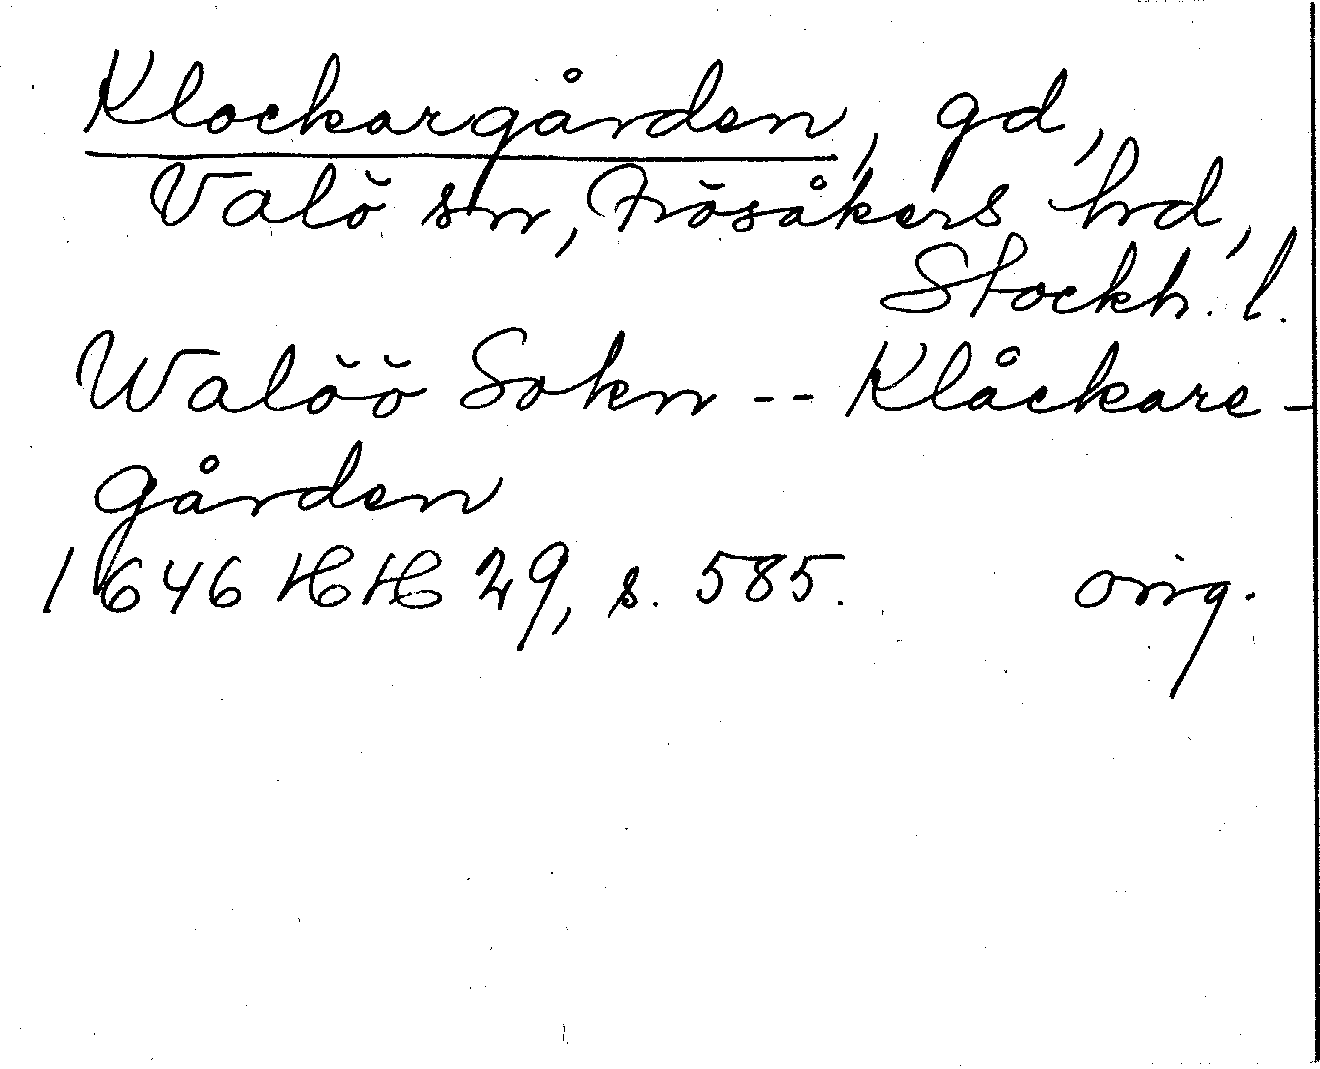 Klockargården, gd,
Valö sn, Frösåkers hrd,
Stockh. l.
Walöö Sokn -- Klåckare-
gården
1646 HH 29, s. 585. orig.